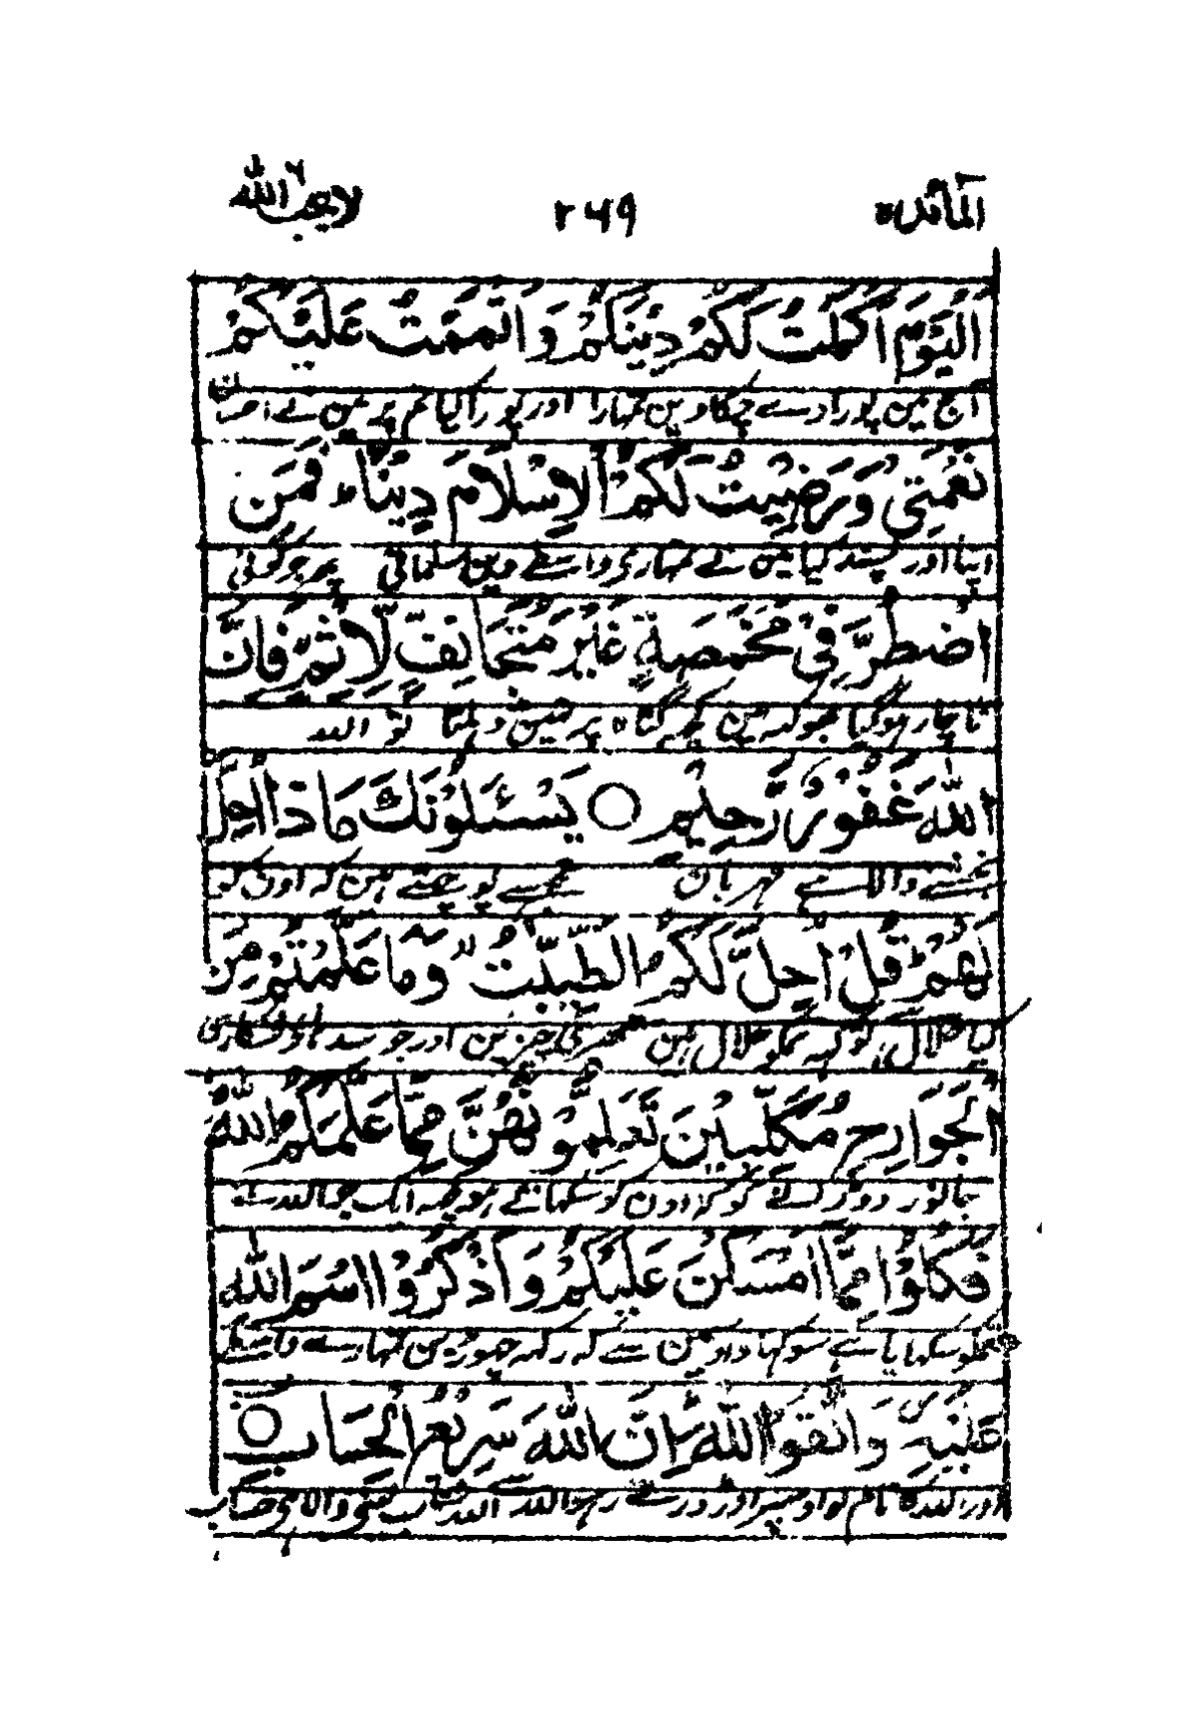 المائدہ ٥ ٢٦٩ لا یحب اللہ ٦
اَلْيَوْمَ اَكْمَلْتُ لَكُمْ دِيْنَكُمْ وَاَتْمَمْتُ عَلَيْكُمْ
آج مین پورا دے چکا دین تمہارا اور پورا کیا تم پر مین نے احسان
نِعْمَتِيْ وَرَضِيْتُ لَكُمُ الْاِسْلَامَ دِيْنًا ط فَمَنِ
اپنا اور پسند کیا مین نے تمہاری واسطے دین مسلمانی پھر جو کوئی
اضْطُرَّ فِيْ مَخْمَصَةٍ غَيْرَ مُتَجَانِفٍ لِّاِثْمٍ فَاِنَّ
ناچار ہو گیا بھوکھہ مین کچھ گناہ پر نہین ڈہلتا تو اللہ
اللّٰهَ غَفُوْرٌ رَّحِيْمٌ ○ يَسْـَٔلُوْنَكَ مَاذَا اُحِلَّ
بخشنے والا ہے مہربان تجھسے پوچھتے ہین کہ اونکو
لَهُمْ ط قُلْ اُحِلَّ لَكُمُ الطَّيِّبٰتُ لا وَمَا عَلَّمْتُمْ مِّنَ
کیا حلال ہے تو کہہ تمکو حلال ہین ستھری چیزین اور جو سدہاؤ شکاری
الْجَوَارِحِ مُكَلِّبِيْنَ تُعَلِّمُوْنَهُنَّ مِمَّا عَلَّمَكُمُ اللّٰهُ
جانور دوڑانے کو کہ اون کو سکھاتے ہو کچھہ ایک جو اللہ نے
فَكُلُوْا مِمَّا اَمْسَكْنَ عَلَيْكُمْ وَاذْكُرُوا اسْمَ اللّٰهِ
تمکو سکھایا ہے سو کھاؤ اوسمین سے کہ رکھہ چھوڑین تمہارے واسطے
عَلَيْهِ وَاتَّقُوا اللّٰهَ ط اِنَّ اللّٰهَ سَرِيْعُ الْحِسَابِ ○
اور اللہ کا نام لو اوسپر اور ڈرتے رہو اللہ سے اللہ شتاب لینے والا ہی حساب